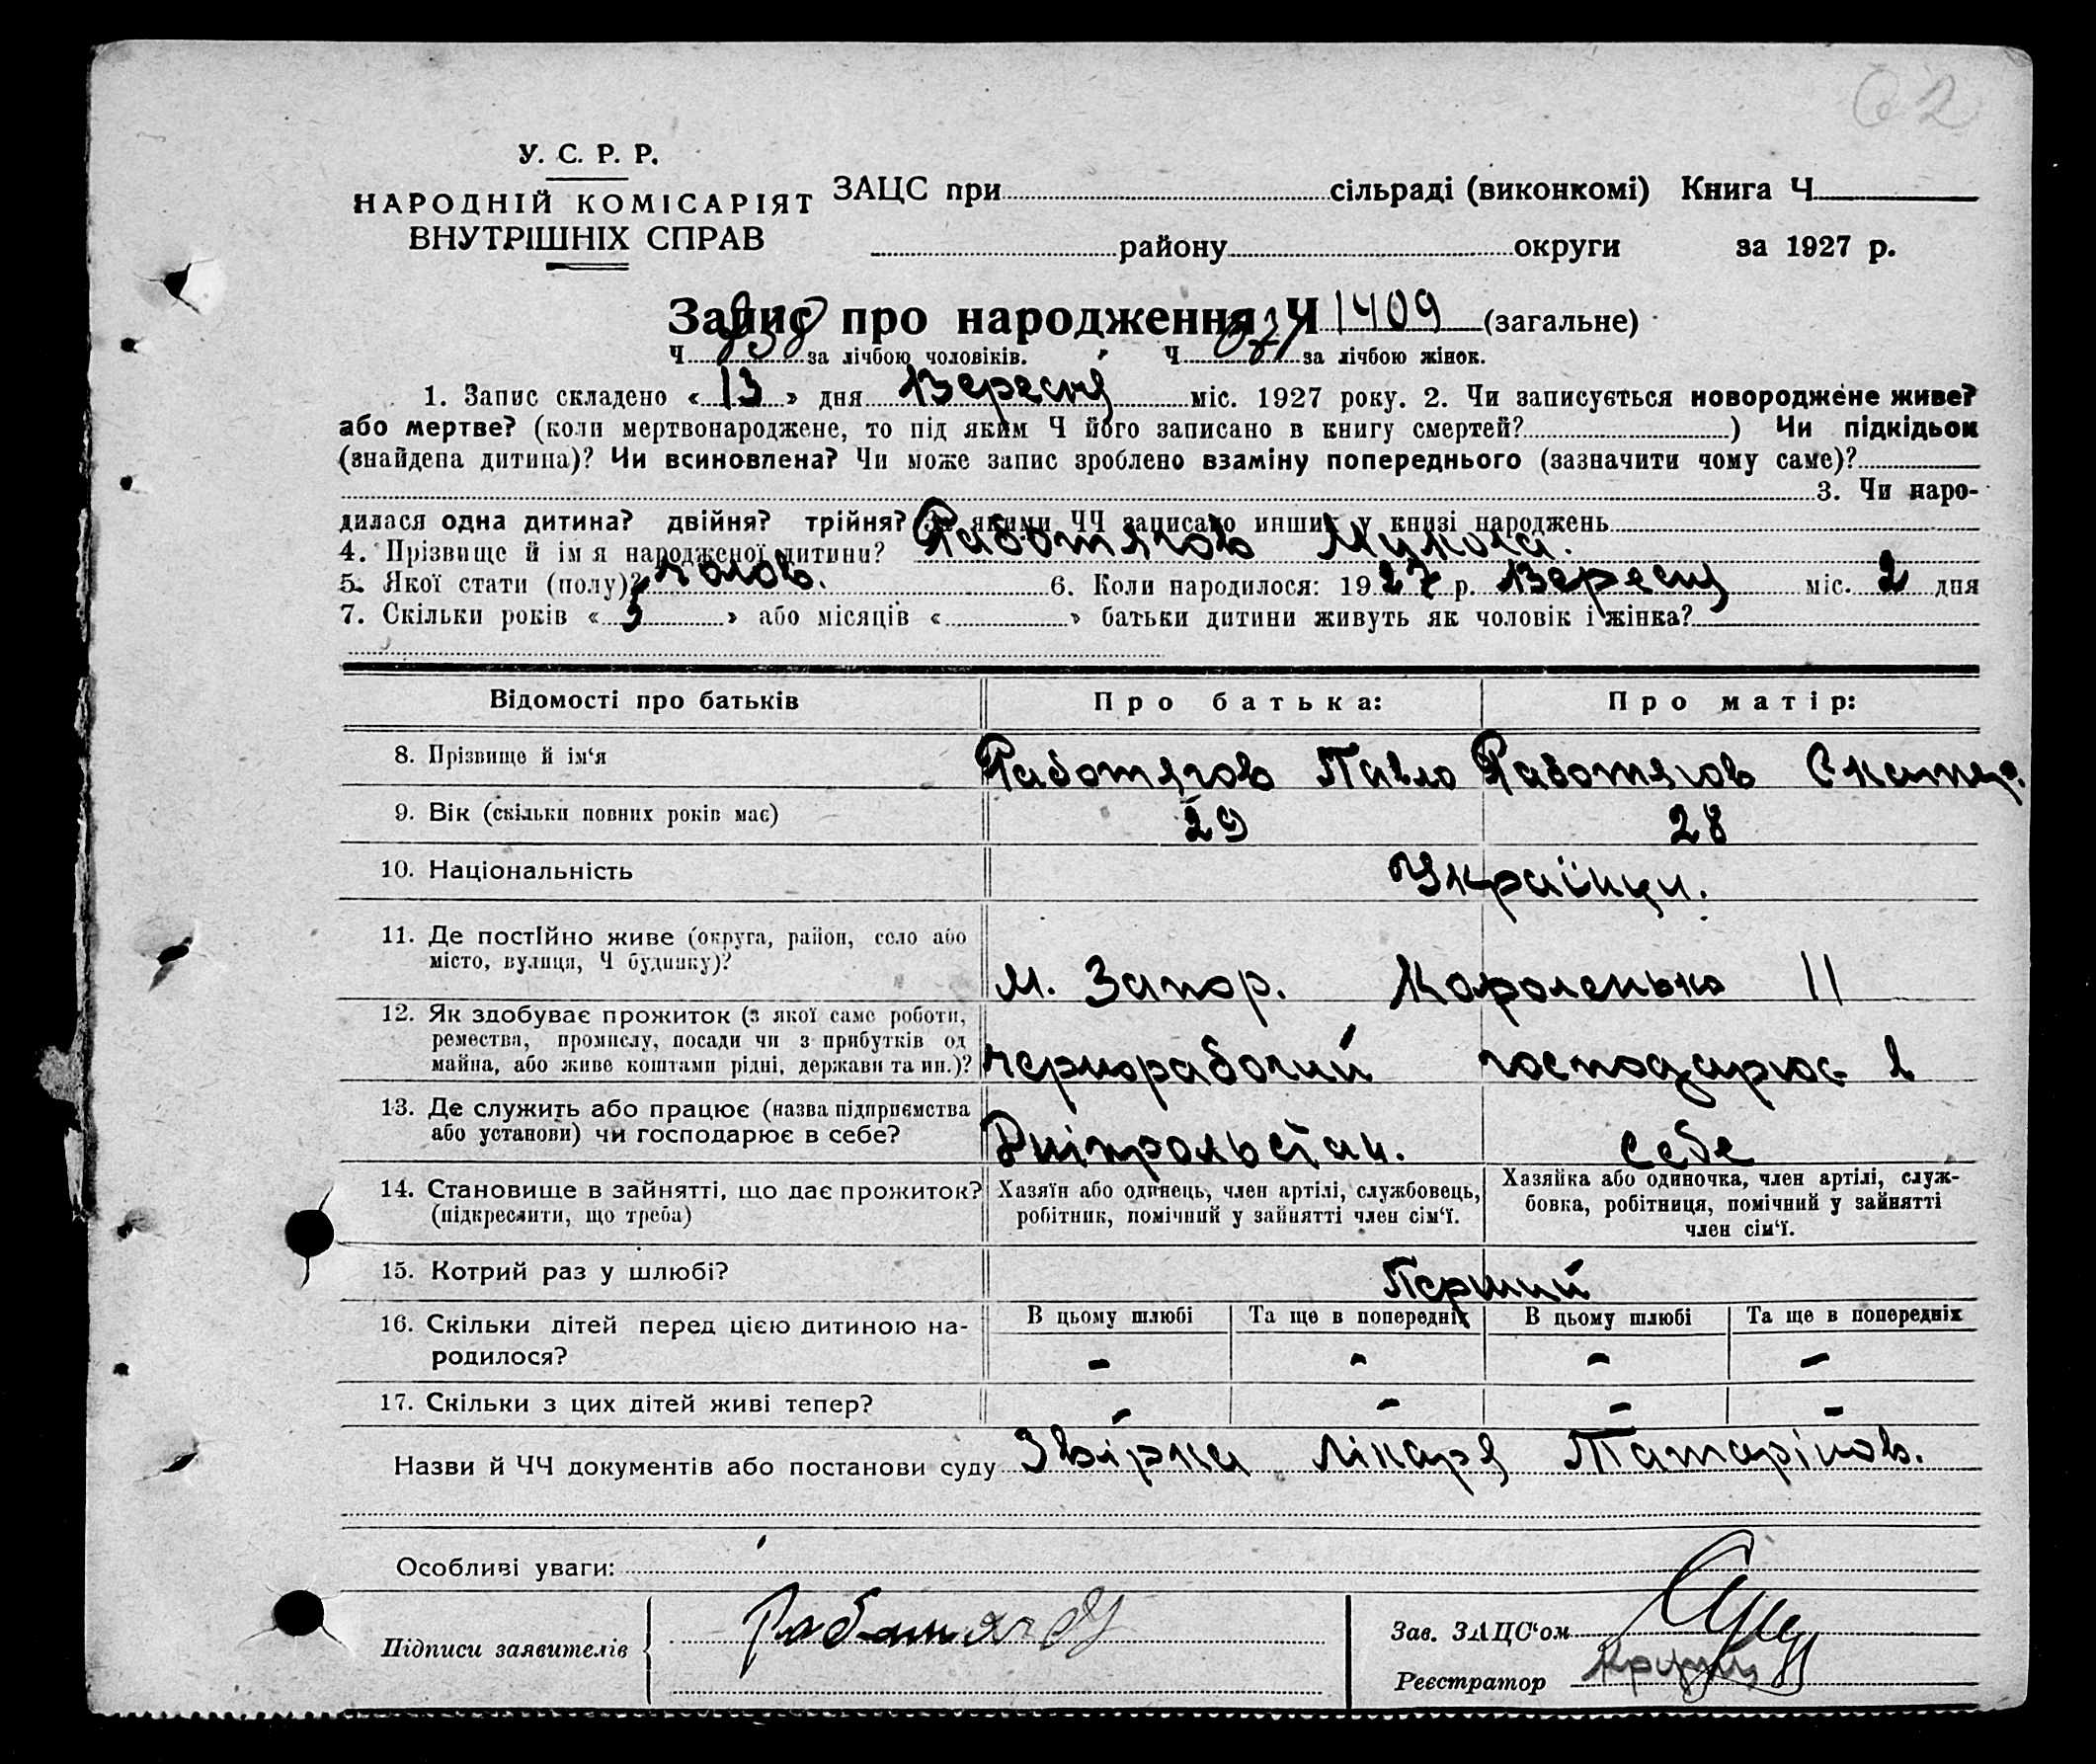 62
У. С. Р. Р.
НАРОДНІЙ КОМІСАРІЯТ
ВНУТРІШНІХ СПРАВ
ЗАЦС при сільраді (виконкомі) Книга Ч
району округи за 1927 р.
Запис про народження Ч 1409 (загальне)
Ч 938 за лічбою чоловіків. Ч за лічбою жінок.
1. Запис складено « 13 » дня Вересня міс. 1927 року. 2. Чи записується новороджене живе?
або мертве? (коли мертвонароджене, то під яким Ч його записано в книгу смертей? ) Чи підкідьок
(знайдена дитина)? Чи всиновлена? Чи може запис зроблено взаміну попереднього (зазначити чому саме)?
3. Чи наро-
дилася одна дитина? двійня? трійня? За якими ЧЧ записано инших у книзі народжень
4. Прізвище й ім я народженої дитини? Работягов Микола.
5. Якої стати (полу)? чолов. 6. Коли народилося: 1927 р. Вересня міс. 2 дня
7. Скільки років « 3 » або місяців « » батьки дитини живуть як чоловік і жінка?
Відомості про батьків Про батька: Про матір:
8. Прізвище й ім‘я Работягов Павло Работягов Скатер.
9. Вік (скільки повних років має) 29 28
10. Національність Українци.
11. Де постійно живе (округа, район, село або
місто, вулиця, Ч будинку)? м. Запор. Короленько 11
12. Як здобуває прожиток (з якої саме роботи,
ремества, промислу, посади чи з прибутків од
майна, або живе коштами рідні, держави та ин.)? чернорабочий господарює в
13. Де служить або працює (назва підприємства
або установи) чи господарює в себе? Дніпрольстан. себе
14. Становище в зайнятті, що дає прожиток?
(підкреслити, що треба)
Хазяїн або одинець, член артілі, службовець,
робітник, помічний у зайнятті член сім‘ї.
Хазяйка або одиночка, член артілі, служ-
бовка, робітниця, помічний у зайнятті
член сім‘ї.
15. Котрий раз у шлюбі? Перший
16. Скільки дітей перед цією дитиною на-
родилося?
В цьому шлюбі Та ще в попередніх В цьому шлюбі Та ще в попередніх
- - - -
17. Скільки з цих дітей живі тепер? - - - -
Назви й ЧЧ документів або постанови суду Звірка лікаря Татарінов.
Особливі уваги:
Підписи заявителів Работягов
Зав. ЗАЦС‘ом
Реєстратор